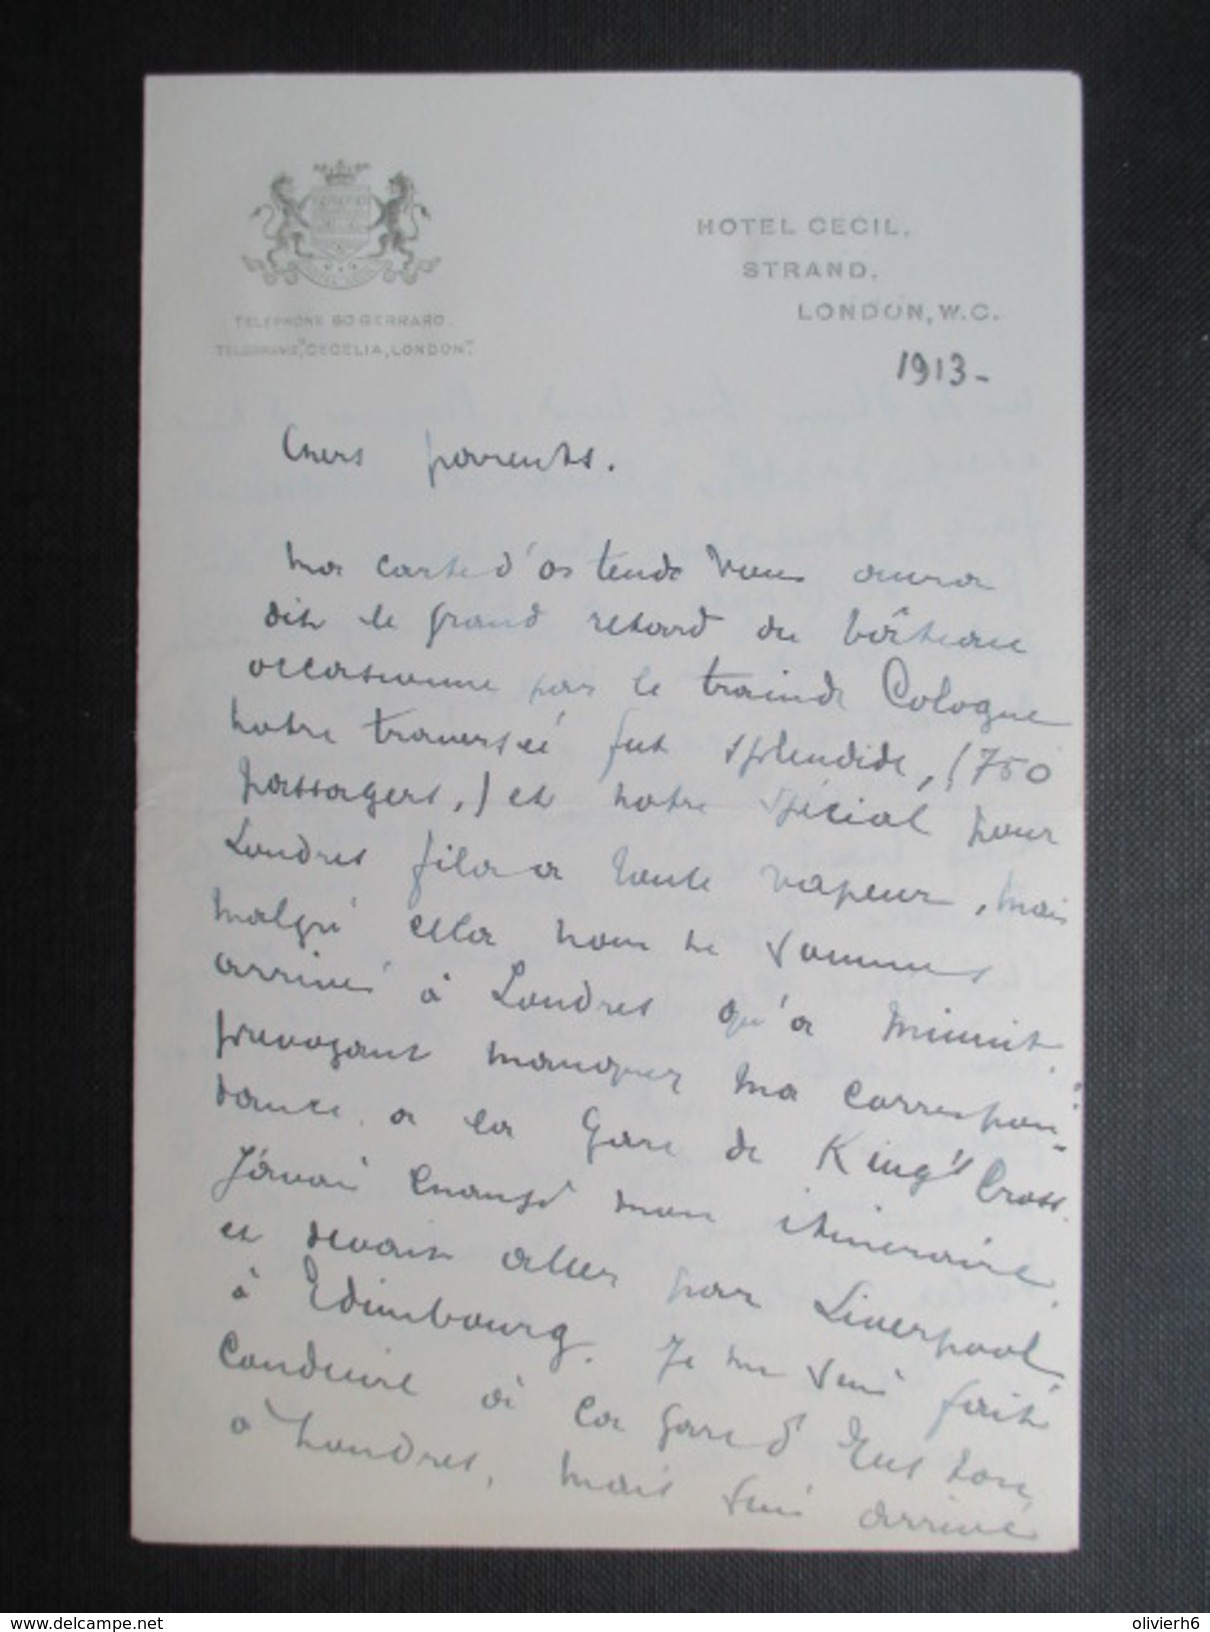 HOTEL CECIL,
STRAND,
LONDON, W.C.
TELEPHONE 60 GERRARD.
TELEGRAMS, "CECELIA, LONDON".
1913-
Chers parents.
Ma carte d'Ostende vous aura
dit le grand retard du bâteau
occasionné par le train de Cologne
notre traversée fut splendide, (750
passagers,) et notre spécial pour
Londres fila a toute vapeur, mais
malgré cela nous ne sommes
arrivé à Londres qu'a Minuit.
prevoyant manquer ma correspon-
dance a la Gare de King's Cross.
J'avai changé mon itineraire
et devait aller par Liverpool
à Edimbourg. Je me suis fait
conduire à la gare d'Euston,
à Londres, mais suis arrivé
www.delcampe.net
olivierh6